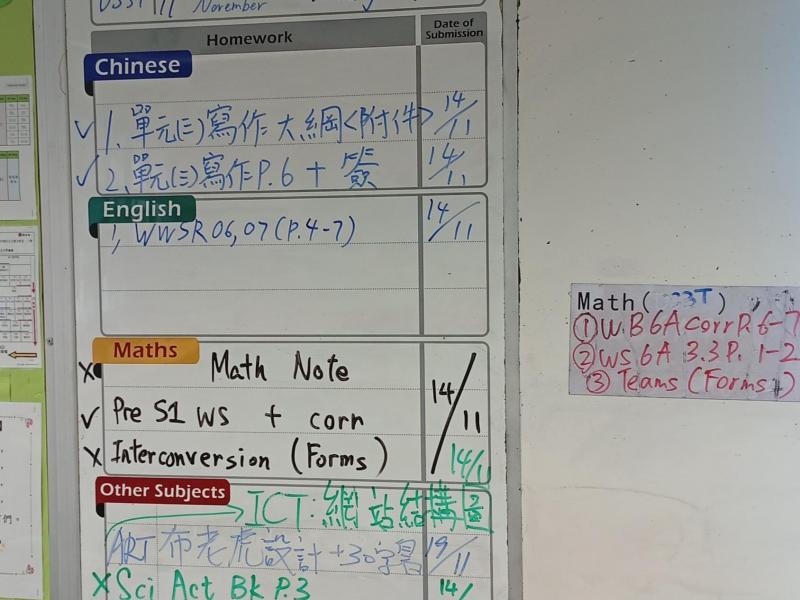 November
Homework
Date of Submission
Chinese
✓ 1. 單元(三)寫作大綱<附件> 14/11
✓ 2. 單元(三)寫作P.6 + 簽 14/11
English
1, WWSR 06,07 (P.4-7) 14/11
Maths
x Math Note
✓ Pre S1 WS + corn 14/11
x Interconversion (Forms) 14/11
Other Subjects
ICT: 網站結構圖
ART 布老虎設計 +30字 /11
x Sci Act Bk P.3 14/
Math( 3T)
① W.B6A corr P.6-7
② WS 6A 3.3 P. 1-2
③ Teams (Forms)